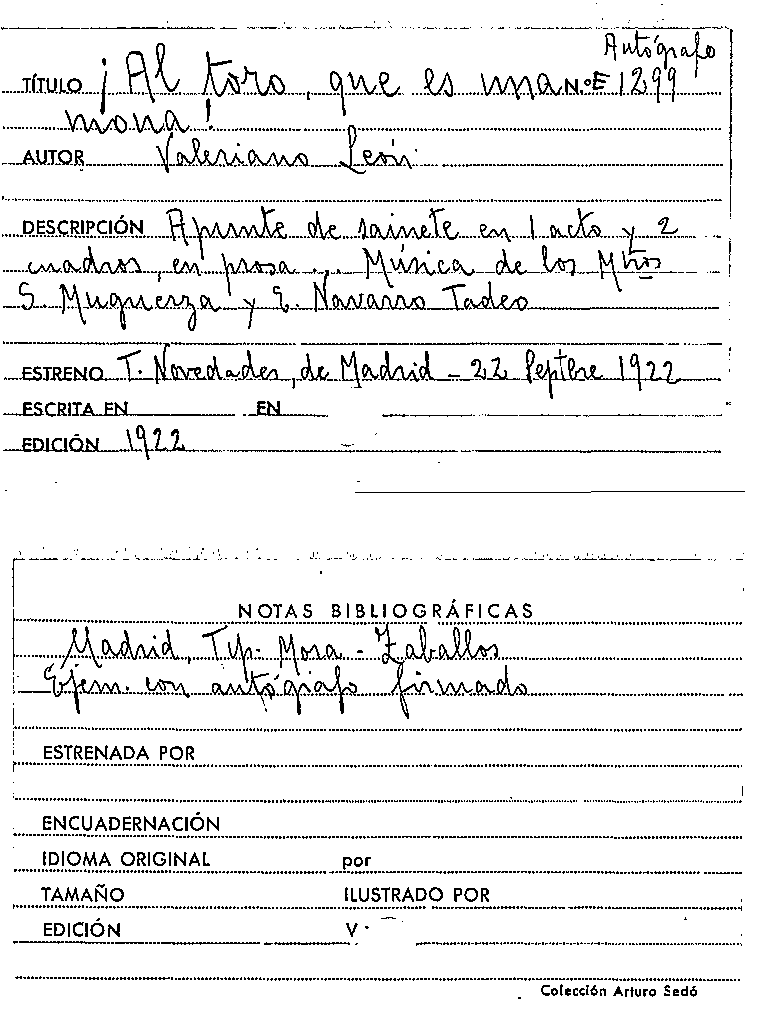 Autógrafo
TÍTULO ¡Al toro, que es una N.ºE 1299
mona!
AUTOR Valeriano León
DESCRIPCIÓN Apunte de sainete en 1 acto y 2
cuadros, en prosa... Música de los Mtros
S. Muguerza y E. Navarro Tadeo
ESTRENO T. Novedades, de Madrid - 22 Septbre 1922
ESCRITA EN EN
EDICIÓN 1922
NOTAS BIBLIOGRÁFICAS
Madrid, Tip. Mora - Zaballos
Ejem. con autógrafo firmado
ESTRENADA POR
ENCUADERNACIÓN
IDIOMA ORIGINAL por
TAMAÑO ILUSTRADO POR
EDICIÓN V.
Colección Arturo Sedó